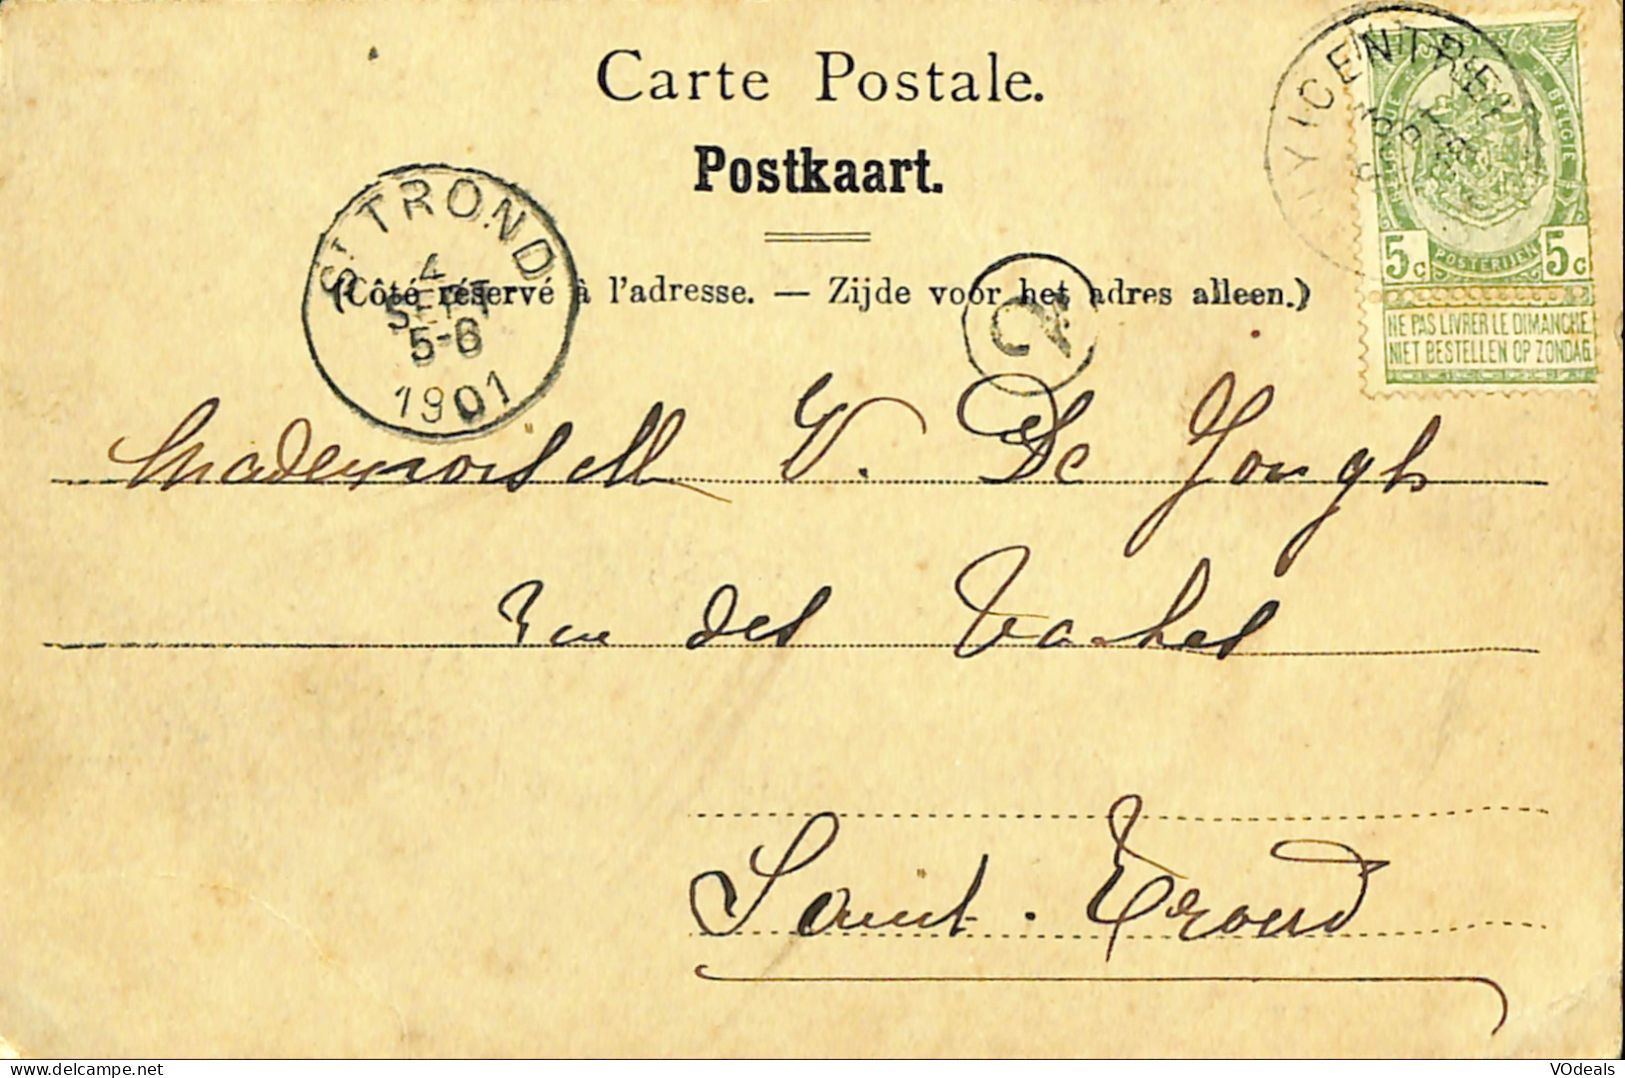 Carte Postale.
Postkaart.
(Côté réservé à l'adresse. — Zijde voor het adres alleen.)
St TROND
4
SEPT
5-6
1901
HUY (CENTRE)
5c POSTERIJEN 5c
NE PAS LIVRER LE DIMANCHE
NIET BESTELLEN OP ZONDAG
Mademoiselle V. De Jongh
Rue des Vaches
Saint. Trond
VOdeals